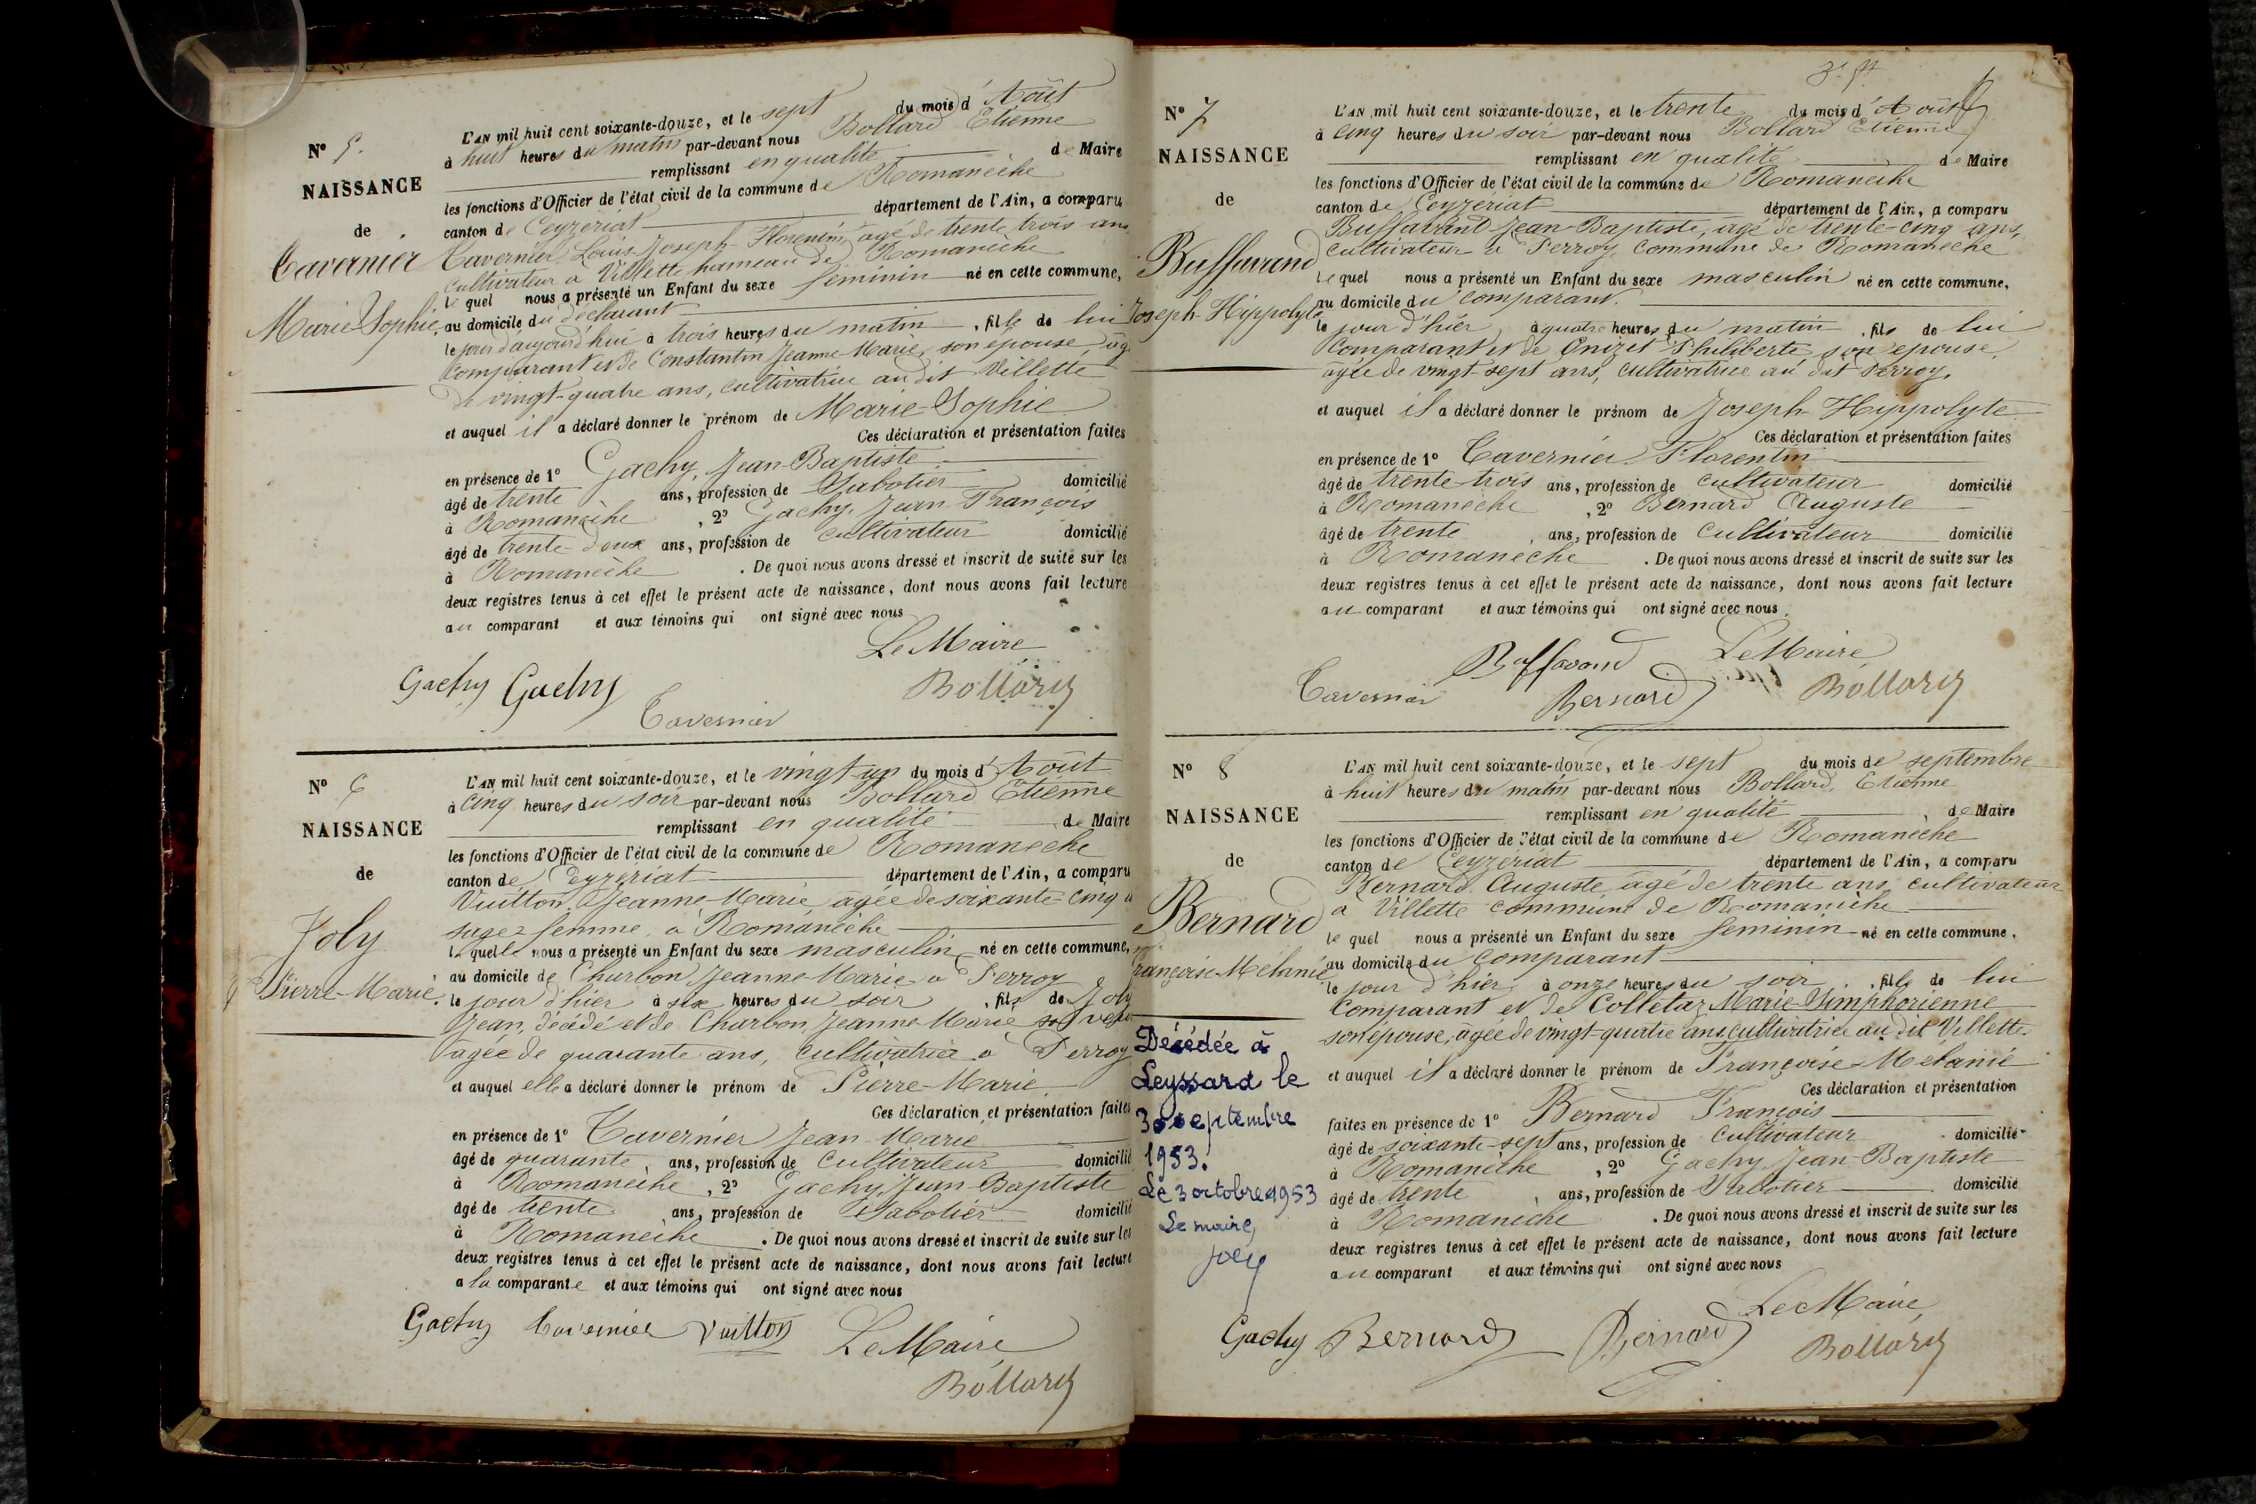 N° 5.
NAISSANCE
de
Tavernier
Marie-Sophie
L'AN mil huit cent soixante-douze, et le sept du mois d'Août
à huit heures du matin par-devant nous Bollard Etienne
remplissant en qualité de Maire
les fonctions d'Officier de l'état civil de la commune de Romanèche
canton de Ceyzériat département de l'Ain, a comparu
Tavernier Louis Joseph Florentin, âgé de trente trois ans
cultivateur à Villette hameau de Romanèche
lequel nous a présenté un Enfant du sexe féminin né en cette commune,
au domicile du déclarant
le jour d'aujourd'hui à trois heures du matin, fille de lui
comparant et de Constantin Jeanne Marie, son épouse âg
de vingt-quatre ans, cultivatrice au dit Villette
et auquel il a déclaré donner le prénom de Marie-Sophie
Ces déclaration et présentation faites
en présence de 1° Gachy, Jean-Baptiste
âgé de trente ans, profession de Sabotier domicilié
à Romanèche, 2° Gachy, Jean-François
âgé de trente-deux ans, profession de cultivateur domicilié
à Romanèche. De quoi nous avons dressé et inscrit de suite sur les
deux registres tenus à cet effet le présent acte de naissance, dont nous avons fait lecture
au comparant et aux témoins qui ont signé avec nous
Le Maire
Gachy Gachy Bollard
Tavernier
N° 6
NAISSANCE
de
Joly
Pierre-Marie.
L'AN mil huit cent soixante-douze, et le vingt-un du mois d'Août
à cinq heures du soir par-devant nous Bollard Etienne
remplissant en qualité de Maire
les fonctions d'Officier de l'état civil de la commune de Romanèche
canton de Ceyzériat département de l'Ain, a comparu
Vuitton Jeanne-Marie âgée de soixante-cinq a
sage-femme, à Romanèche
laquelle nous a présenté un Enfant du sexe masculin né en cette commune,
au domicile de Charbon Jeanne-Marie à Perroy
le jour d'hier à six heures du soir, fils de Joly
Jean, décédé et de Charbon, Jeanne-Marie sa veuve
âgée de quarante ans, cultivatrice à Perroy
et auquel elle a déclaré donner le prénom de Pierre-Marie
Ces déclaration et présentation faites
en présence de 1° Tavernier Jean-Marie
âgé de quarante ans, profession de cultivateur domicilié
à Romanèche, 2° Gachy, Jean-Baptiste
âgé de trente ans, profession de Sabotier domicilié
à Romanèche. De quoi nous avons dressé et inscrit de suite sur les
deux registres tenus à cet effet le présent acte de naissance, dont nous avons fait lecture
à la comparante et aux témoins qui ont signé avec nous
Gachy Tavernier Vuitton Le Maire
Bollard
N° 7
NAISSANCE
de
Buffavand
Joseph-Hippolyte
L'AN mil huit cent soixante-douze, et le trente du mois d'Août
à cinq heures du soir par-devant nous Bollard Etienne
remplissant en qualité de Maire
les fonctions d'Officier de l'état civil de la commune de Romanèche
canton de Ceyzériat département de l'Ain, a comparu
Buffavand Jean-Baptiste, âgé de trente-cinq ans,
cultivateur à Perroy, commune de Romanèche
lequel nous a présenté un Enfant du sexe masculin né en cette commune,
au domicile du comparant.
le jour d'hier, à quatre heures du matin, fils de lui
comparant et de Onizet Philiberte, son épouse,
âgée de vingt-sept ans, cultivatrice au dit Perroy,
et auquel il a déclaré donner le prénom de Joseph-Hippolyte
Ces déclaration et présentation faites
en présence de 1° Tavernier Florentin
âgé de trente-trois ans, profession de cultivateur domicilié
à Romanèche, 2° Bernard Auguste
âgé de trente, ans, profession de cultivateur domicilié
à Romanèche. De quoi nous avons dressé et inscrit de suite sur les
deux registres tenus à cet effet le présent acte de naissance, dont nous avons fait lecture
au comparant et aux témoins qui ont signé avec nous.
Buffavand Le Maire
Tavernier Bernard Bollard
N° 8
NAISSANCE
de
Bernard
Françoise-Mélanie
Décédée à
Leyssard le
30 septembre
1953.
Le 3 octobre 1953
Le maire,
Joly
L'AN mil huit cent soixante-douze, et le sept du mois de septembre
à huit heures du matin par-devant nous Bollard, Etienne
remplissant en qualité de Maire
les fonctions d'Officier de l'état civil de la commune de Romanèche
canton de Ceyzériat département de l'Ain, a comparu
Bernard Auguste âgé de trente ans, cultivateur
à Villette commune de Romanèche
lequel nous a présenté un Enfant du sexe féminin né en cette commune,
au domicile du comparant
le jour d'hier, à onze heures du soir, fille de lui
comparant et de Colletaz Marie-Simphorienne
son épouse, âgée de vingt-quatre ans cultivatrice au dit Villette.
et auquel il a déclaré donner le prénom de Françoise-Mélanie
Ces déclaration et présentation
faites en présence de 1° Bernard François
âgé de soixante-sept ans, profession de cultivateur domicilié
à Romanèche, 2° Gachy Jean-Baptiste
âgé de trente, ans, profession de Sabotier domicilié
à Romanèche. De quoi nous avons dressé et inscrit de suite sur les
deux registres tenus à cet effet le présent acte de naissance, dont nous avons fait lecture
au comparant et aux témoins qui ont signé avec nous
Le Maire
Gachy Bernard Bernard Bollard